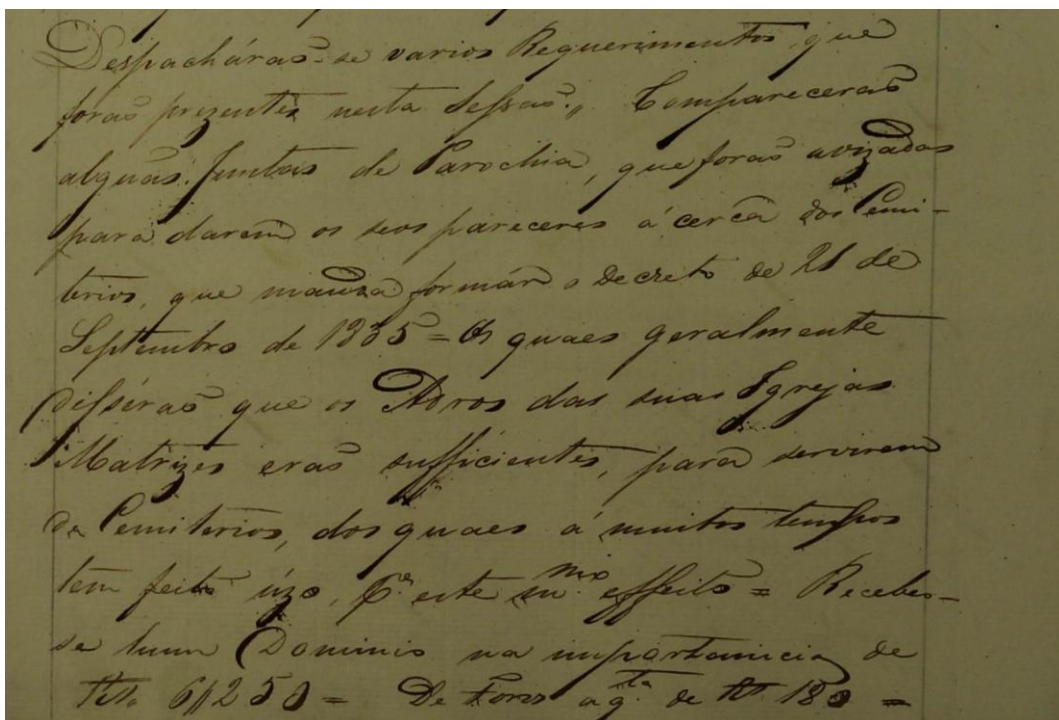 Despachárão-se varios Requerimentos, que
forão prezentes nesta Sessão. „ Comparecerão
alguãs Juntas de Parochia, que forão avizadas
para darem os seos pareceres á cerca dos Cemi-
terios, que manda formár o Decreto de 21 de
Septembro de 1835 = Os quaes geralmente
disserão que os Adros das suas Igrejas
Matrizes erão sufficientes, para servirem
de Cemiterios, dos quaes á muitos tempos
tem feito úzo, Pª este mmo effeito = Recebeo-
se hum Dominio na importanicia de
Rs. 6||250 = De Foros a qta de Rs. 180 =